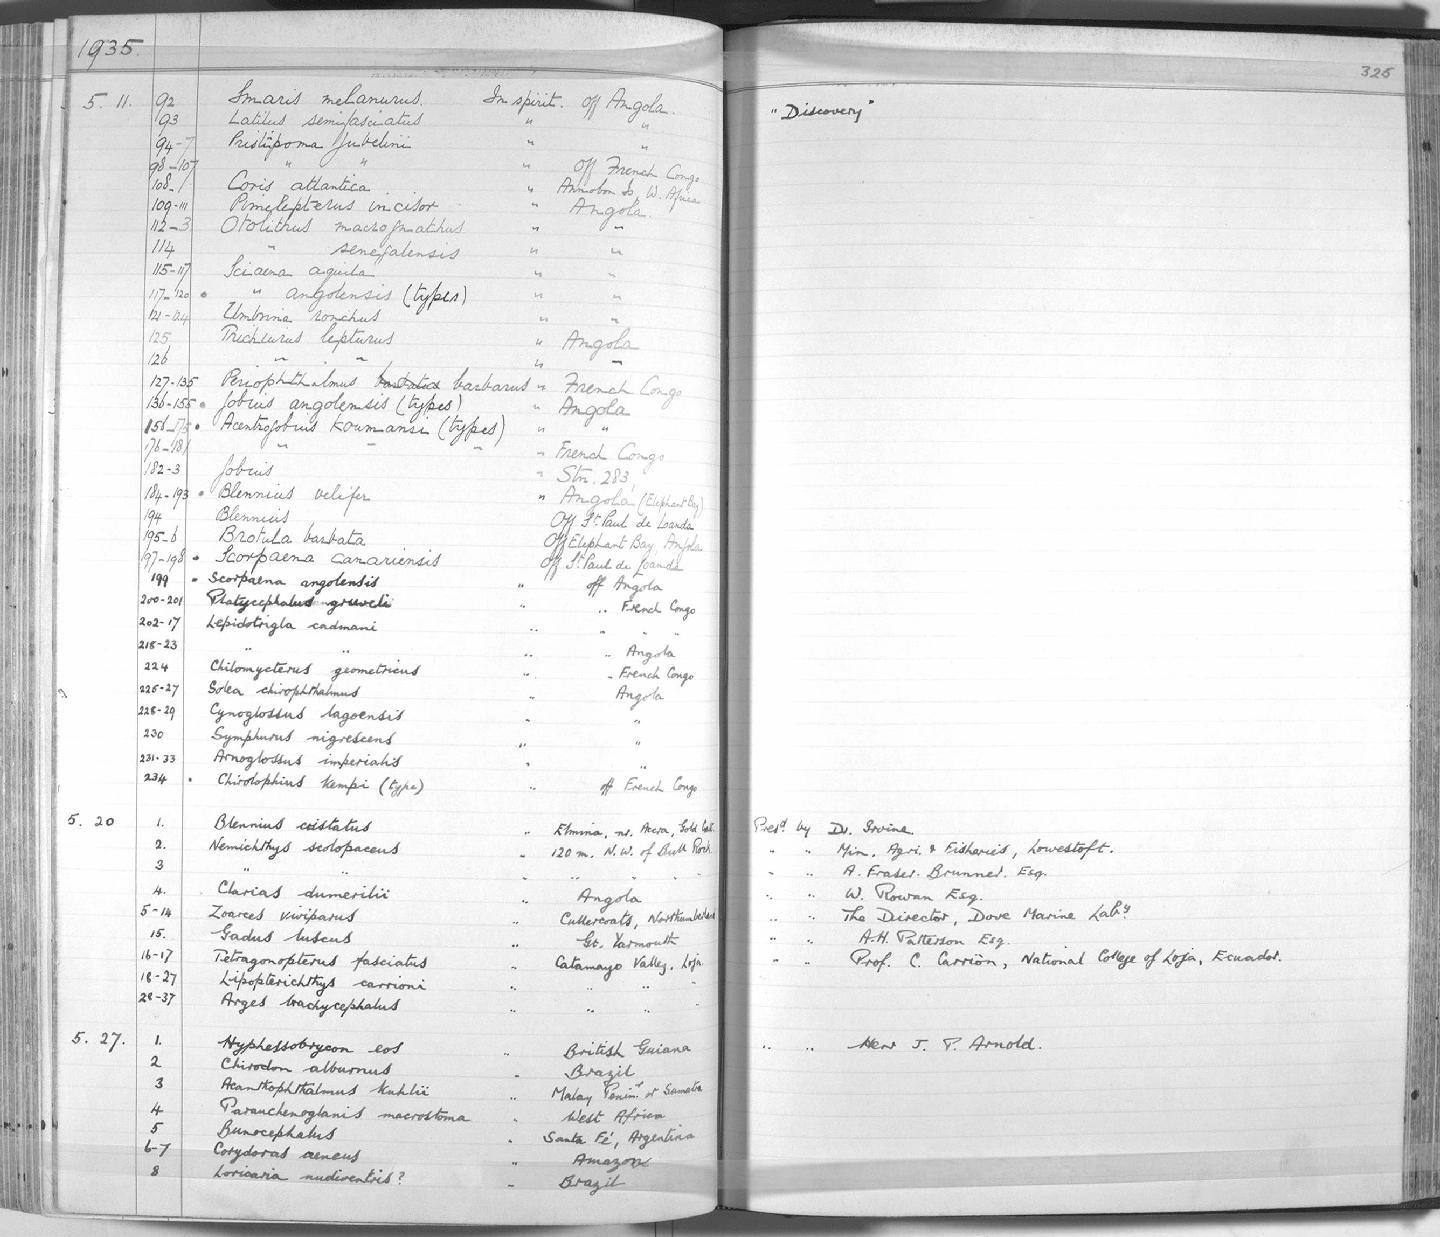 1935.
325
5. 11. 92 Smaris melanurus. In spirit. off Angola. "Discovery"
93 Latilus semifasciatus " "
94-7 Pristipoma Jubelini " "
98-107 " " " off French Congo
108- Coris atlantica " Annobon Is, W. Africa
109-111 Pimelepterus incisor " Angola.
112-3 Otolithus macrognathus " "
114 " senegalensis " "
115-117 Sciaena aquila " "
117-120 • " angolensis (types) " "
121-124 Umbrina ronchus " "
125 Trichiurus lepturus " Angola
126 " " " "
127-135 Periophthalmus barbarus " French Congo
136-155 • Gobius angolensis (types) " Angola
156-175 • Acentrogobius Koumansi (types) " "
176-181 " " " " French Congo
182-3 Gobius " Stn. 283,
184-193 • Blennius velifer " Angola (Elephant Bay)
194 Blennius Off St. Paul de Loanda
195-6 Brotula barbata Off Elephant Bay Angola
197-198 • Scorpaena canariensis Off St. Paul de Loanda
199 • Scorpaena angolensis " off Angola
200-201 Platycephalus gruveli " " French Congo
202-17 Lepidotrigla cadmani " " " "
218-23 " " " " Angola
224 Chilomycterus geometricus " " French Congo
225-27 Solea chirophthalmus " Angola
228-29 Cynoglossus lagoensis " "
230 Symphurus nigrescens " "
231-33 Arnoglossus imperialis " "
234 • Chirolophius Kempi (type) " off French Congo
5. 20 1. Blennius cristatus " Elmina, nr. Accra, Gold Cst. Presd. by Dr. Irvine.
2. Nemichthys scolopaceus " 120 m. N.W. of Bull Rock " " Min. Agri. & Fisheries, Lowestoft.
3 " " " " " " " " " A. Fraser-Brunner. Esq.
4. Clarias dumerilii Angola " " W. Rowan Esq.
5-14 Zoarces viviparus " Cullercoats, Northumberland " " The Director, Dove Marine Laby.
15. Gadus luscus " Gt. Yarmouth " " A.H. Patterson Esq.
16-17 Tetragonopterus fasciatus " Catamayo Valley, Loja. " " Prof. C. Carrión, National College of Loja, Ecuador.
18-27 Lipopterichthys carrioni " " " "
28-37 Arges brachycephalus " " " "
5. 27. 1. Hyphessobrycon eos " British Guiana " " Herr J. P. Arnold.
2 Chirodon alburnus " Brazil
3 Acanthophthalmus Kuhlii " Malay Penin. or Sumatra
4 Parauchenoglanis macrostoma " West Africa
5 Bunocephalus " Santa Fé, Argentina
6-7 Corydoras aeneus " Amazon
8 Loricaria nudiventris? " Brazil